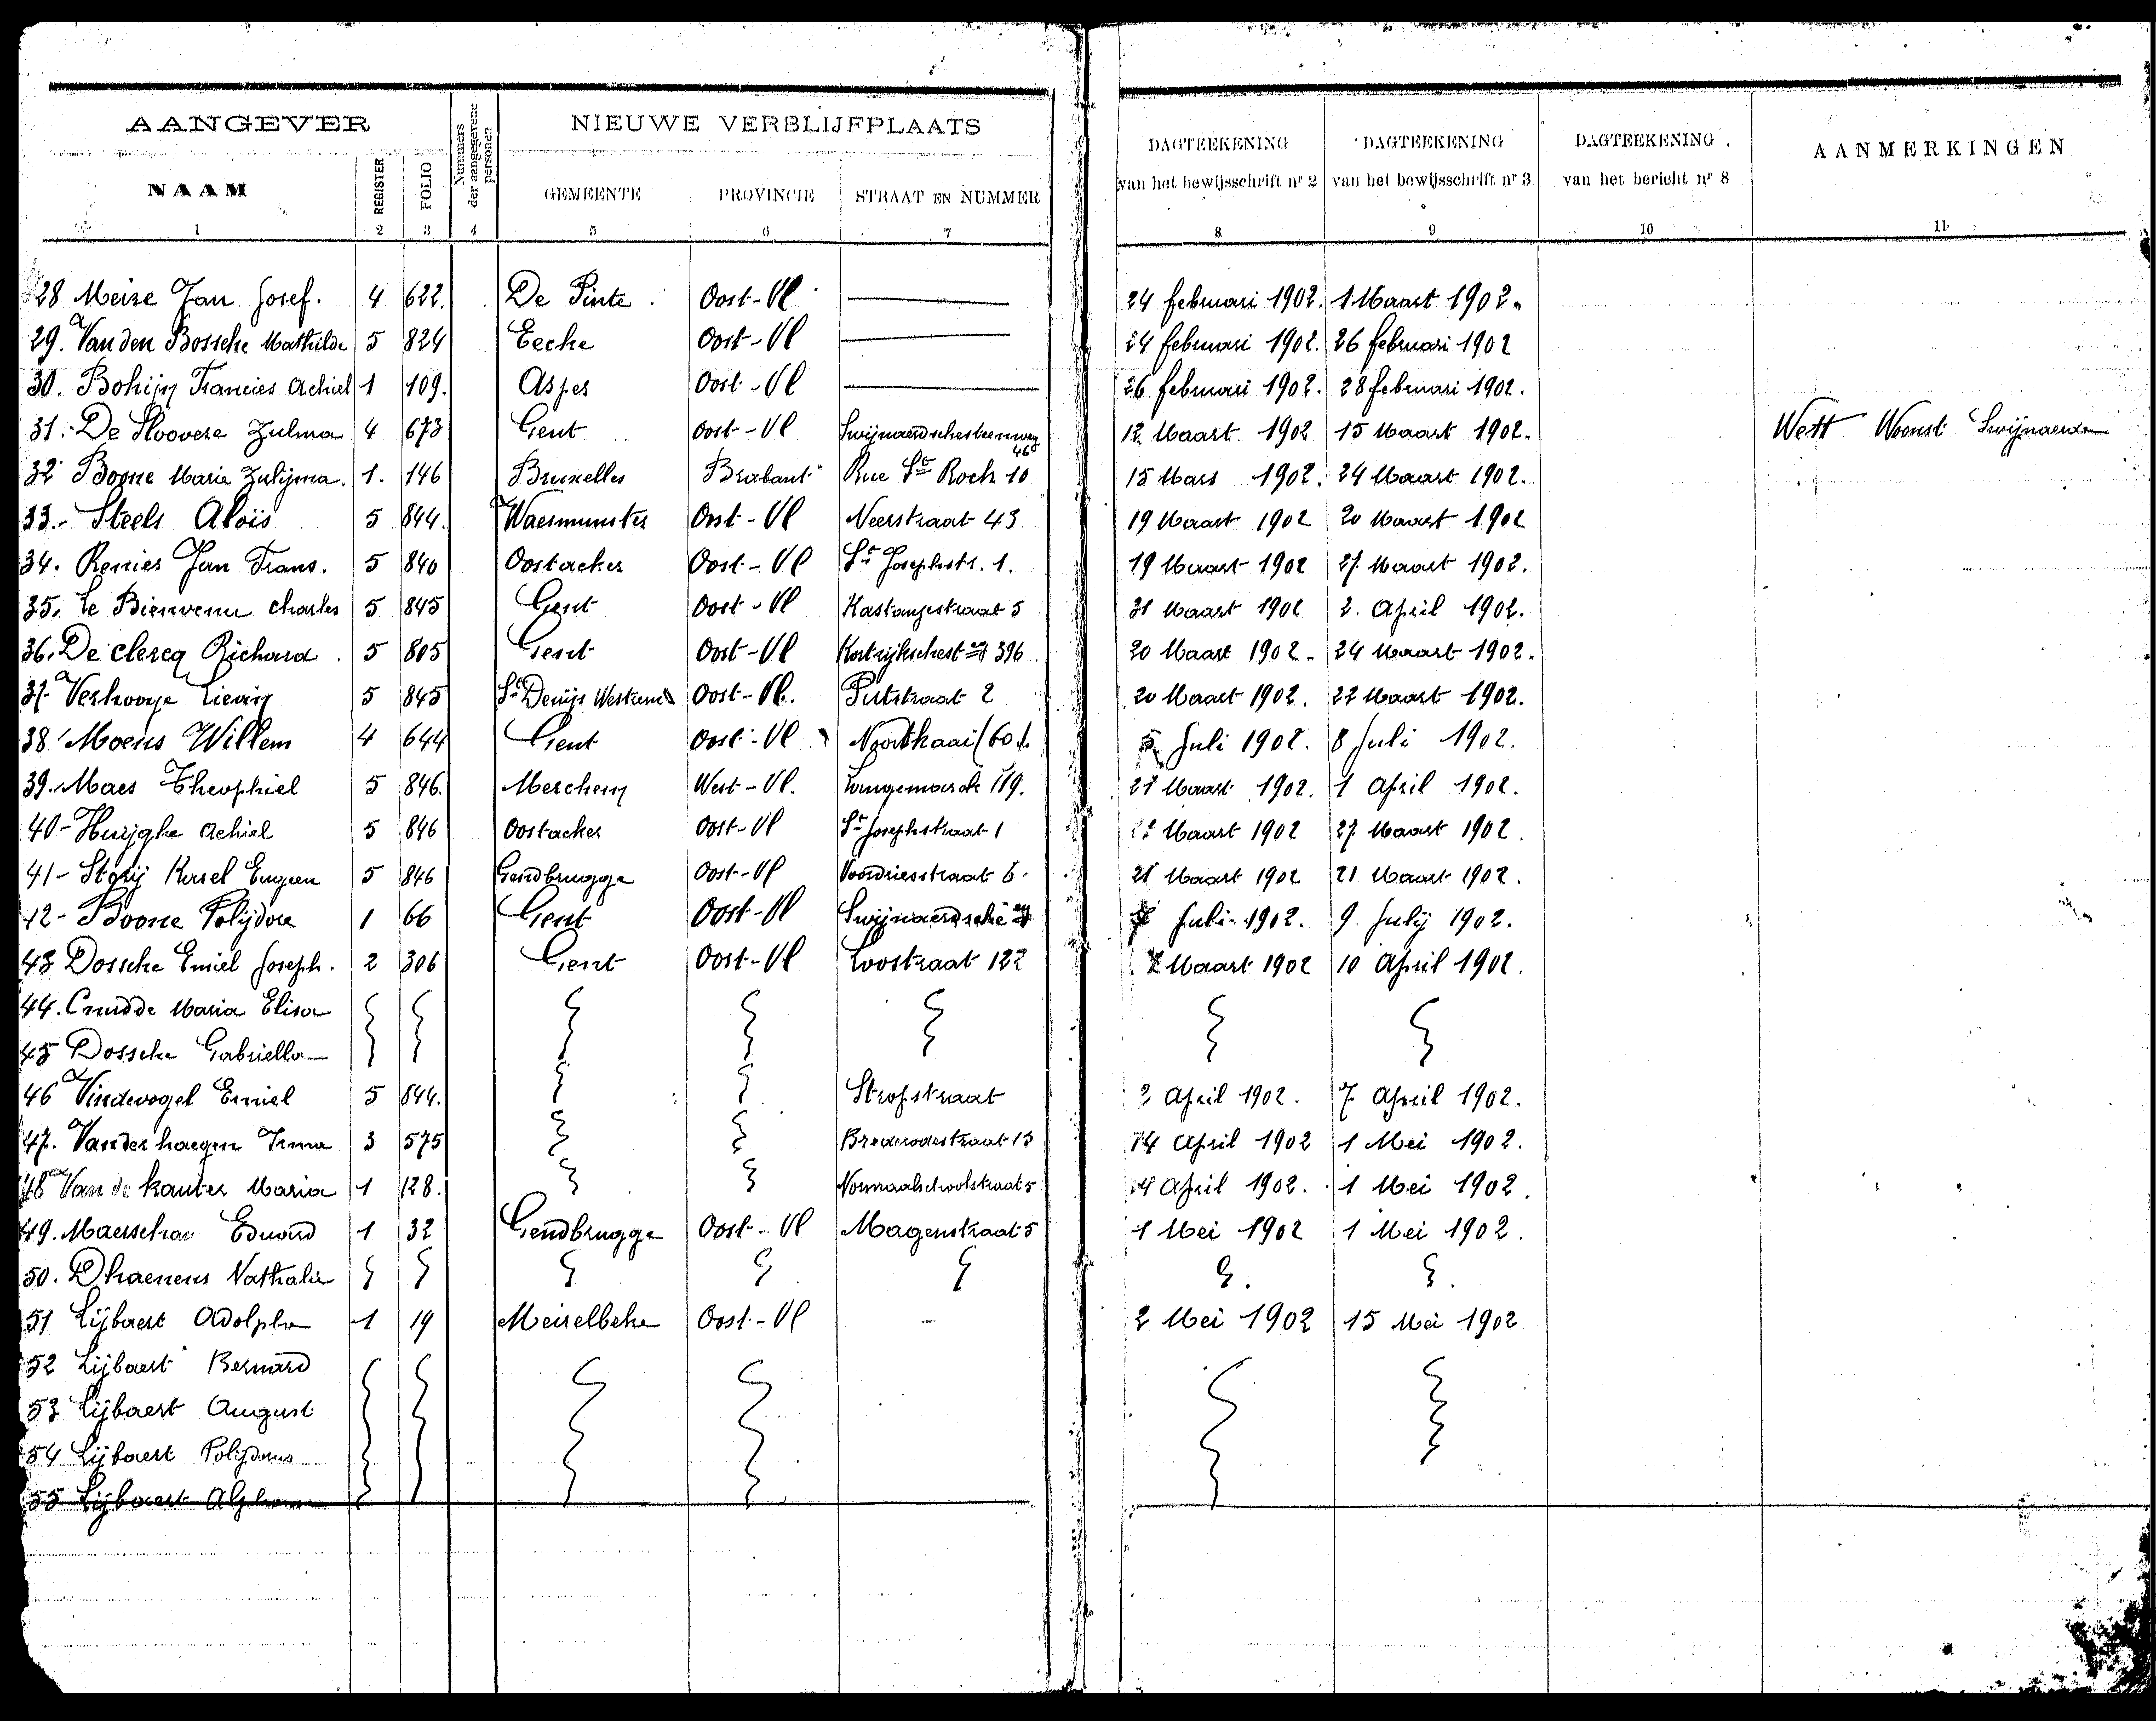 AANGEVER NIEUWE VERBLIJFPLAATS
NAAM REGISTER FOLIO Nummers der aangegevene personen GEMEENTE PROVINCIE STRAAT EN NUMMER DAGTEEKENING van het bewijsschrift nr 2 DAGTEEKENING van het bewijsschrift nr 3 DAGTEEKENING van het bericht nr 8 AANMERKINGEN
1 2 3 4 5 6 7 8 9 10 11
28 Meire Jan Josef. 4 622. De Pinte Oost-Vl 24 februari 1902. 1 Maart 1902.
29. Van den Bossche Mathilde 5 824 Eecke Oost-Vl 24 februari 1902. 26 februari 1902
30. Bohijn Francies Achiel 1 109. Asper Oost-Vl 26 februari 1902. 28 februari 1902.
31. De Sloovere Zulma 4 673 Gent Oost-Vl Swijnaerdschesteenweg 46 12 Maart 1902 15 Maart 1902. Wett Woonst Swijnaerde
32 Boone Marie Zulijma. 1. 146 Bruxelles Brabant Rue St Roch 10 15 Mars 1902. 24 Maart 1902.
33.- Steels Aloïs 5 844. Waesmunster Oost-Vl Neerstraat 43 19 Maart 1902 20 Maart 1902
34. Renier Jan Frans. 5 840 Oostacker Oost-Vl St Josephstr. 1. 19 Maart 1902 27 Maart 1902.
35. Le Bienvenu Charles 5 845 Gent Oost-Vl Kastanjestraat 5 31 Maart 1902 2. April 1902.
36. De clercq Richard. 5 805 Gent Oost-Vl Kortrijkschest 396 20 Maart 1902. 24 Maart 1902.
37- Verhooye Lievin 5 845 St Denijs Westrem Oost-Vl. Putstraat 2 20 Maart 1902. 22 Maart 1902.
38 Moens Willem 4 644 Gent Oost-Vl Noordkaai (60). 5 Juli 1902. 8 Juli 1902.
39. Maes Theophiel 5 846. Merchem West-Vl. Langemarck 119. 27 Maart 1902. 1 April 1902.
40- Huijghe Achiel 5 846 Oostacker Oost-Vl St Josephstraat 1 Maart 1902 27 Maart 1902.
41- Storij Karel Eugeen 5 846 Gendbrugge Oost-Vl Voordriesstraat 6- 21 Maart 1902 21 Maart 1902.
42- Boone Polijdore 1 66 Gent Oost-Vl Swijnaerdsche Juli 1902. 9. July 1902.
43 Dossche Emiel Joseph. 2 306 Gent Oost-Vl Loostraat 122 Maart 1902 10 April 1902.
44. Cnudde Maria Elisa
45 Dossche Gabriella
46 Vindevogel Emiel 5 844. Stropstraat 3 April 1902. 7 April 1902.
47. Vanderhaegen Irma 3 575 Brederodestraat 13 14 April 1902 1 Mei 1902.
48 Van de kauter Maria 1 128. Normaalschoolstraat 5 14 April 1902. 1 Mei 1902.
49. Maerschav Eduard 1 32 Gendbrugge Oost-Vl Magenstraat 5 1 Mei 1902 1 Mei 1902.
50. Dhaenens Nathalie
51 Lijbaert Adolphe 1 19 Meirelbeke Oost-Vl - 2 Mei 1902 15 Mei 1902
52 Lijbaert Bernard
53 Lijbaert August
54 Lijbaert Polijdorus
55 Lijbaert Alphons